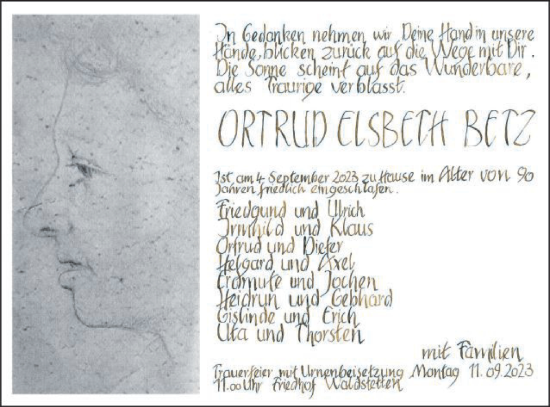 In Gedanken nehmen wir Deine Hand in unsere
Hände, blicken zurück auf die Wege mit Dir.
Die Sonne scheint auf das Wunderbare,
alles Traurige verblasst.
ORTRUD ELSBETH BETZ
Ist am 4. September 2023 zu Hause im Alter von 90
Jahren friedlich eingeschlafen.
Friedgund und Ulrich
Irmhild und Klaus
Ortrud und Dieter
Helgard und Axel
Erdmute und Jochen
Heidrun und Gebhard
Gislinde und Erich
Uta und Thorsten
mit Familien
Trauerfeier mit Urnenbeisetzung Montag 11.09.2023
11.00 Uhr Friedhof Waldstetten